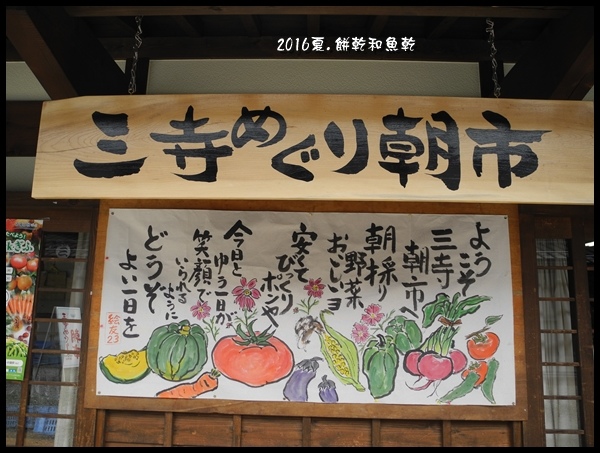 2016夏.餅乾和魚乾
三寺めぐり朝市
ようこそ
三寺
朝市へ
朝採り
野菜
おいしいヨ
安くて
びっくり
ポンやへ
今日とゆう一日が
笑顔で
いられる
ように
どうぞ
よい一日を
絵友23